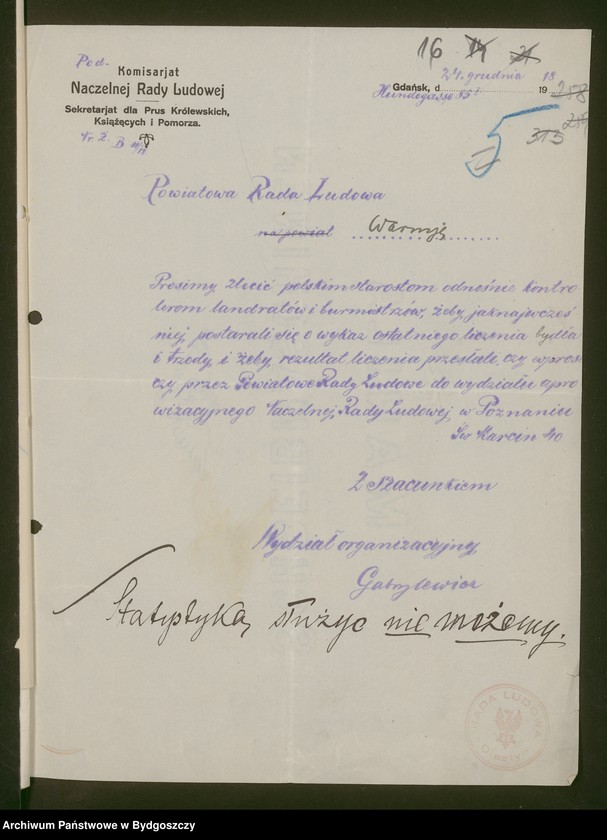 Pod-
Komisarjat
Naczelnej Rady Ludowej
Sekretarjat dla Prus Królewskich,
Książęcych i Pomorza.
Nr. 2. B
16 14 21
24. grudnia 18
Gdańsk, d 19
Hundegasse
258
315
5
Powiatowa Rada Ludowa
na powiat Warmję
Prosimy zlecić polskim starostom odnośnie kontro
lerom landratów i burmistrzów, żeby jaknajwcześ
niej postarali się o wykaz ostatniego liczenia bydła
i trzody i żeby rezultat liczenia przesłali czy wpros
czy przez Powiatowe Rady Ludowe do wydziału apro
wizacyjnego Naczelnej Rady Ludowej w Poznaniu
Św Marcin 40
Z Szacunkiem
Wydział organizacyjny
Gabrylewicz
Statystyką służyc nie możemy.
RADA LUDOWA
Archiwum Państwowe w Bydgoszczy